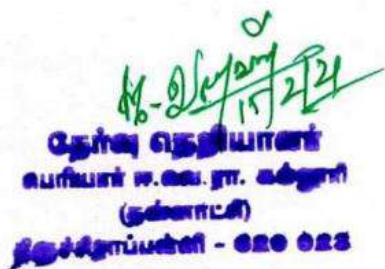 15/2/21
தேர்வு நெறியாளர்
பெரியார் ஈ.வெ.ரா. கல்லூரி
(தன்னாட்சி)
திருச்சிராப்பள்ளி - 620 023